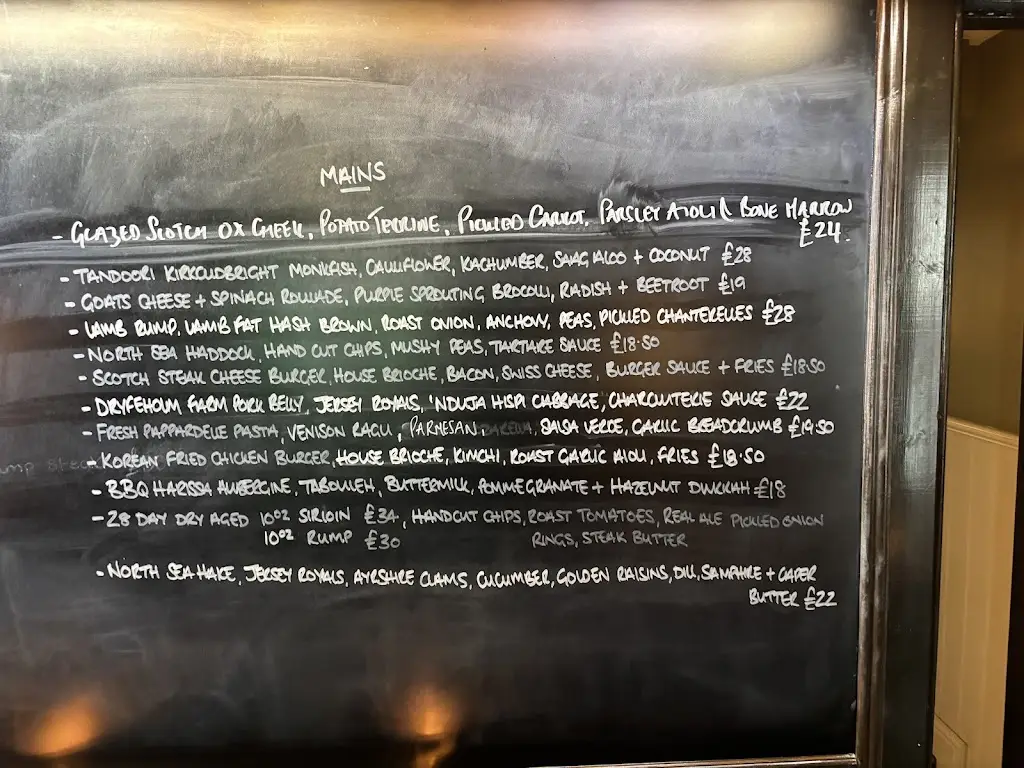 MAINS
- GLAZED SCOTCH OX CHEEK, POTATO TERRINE, PICKLED CARROT, PARSLEY AIOLI & BONE MARROW
£24.
- TANDOORI KIRKCUDBRIGHT MONKFISH, CAULIFLOWER, KACHUMBER, SAAG ALOO + COCONUT £28
- GOATS CHEESE + SPINACH ROULADE, PURPLE SPROUTING BROCOLLI, RADISH + BEETROOT £19
- LAMB RUMP, LAMB FAT HASH BROWN, ROAST ONION, ANCHOVY, PEAS, PICKLED CHANTERELLES £28
- NORTH SEA HADDOCK, HAND CUT CHIPS, MUSHY PEAS, TARTARE SAUCE £18.50
- SCOTCH STEAK CHEESE BURGER, HOUSE BRIOCHE, BACON, SWISS CHEESE, BURGER SAUCE + FRIES £18.50
- DRYFEHOLM FARM PORK BELLY, JERSEY ROYALS, 'NDUJA HISPI CABBAGE, CHARCUTERIE SAUCE £22
- FRESH PAPPARDELLE PASTA, VENISON RAGU, PARMESAN, SALSA VERDE, GARLIC BREADCRUMB £19.50
- KOREAN FRIED CHICKEN BURGER, HOUSE BRIOCHE, KIMCHI, ROAST GARLIC AIOLI, FRIES £18.50
- BBQ HARISSA AUBERGINE, TABOULEH, BUTTERMILK, POMMEGRANATE + HAZELNUT DUKKAH £18
- 28 DAY DRY AGED 10oz SIRLOIN £34, HANDCUT CHIPS, ROAST TOMATOES, REAL ALE PICKLED ONION
10oz RUMP £30 RINGS, STEAK BUTTER
- NORTH SEA HAKE, JERSEY ROYALS, AYRSHIRE CLAMS, CUCUMBER, GOLDEN RAISINS, DILL, SAMPHIRE + CAPER
BUTTER £22